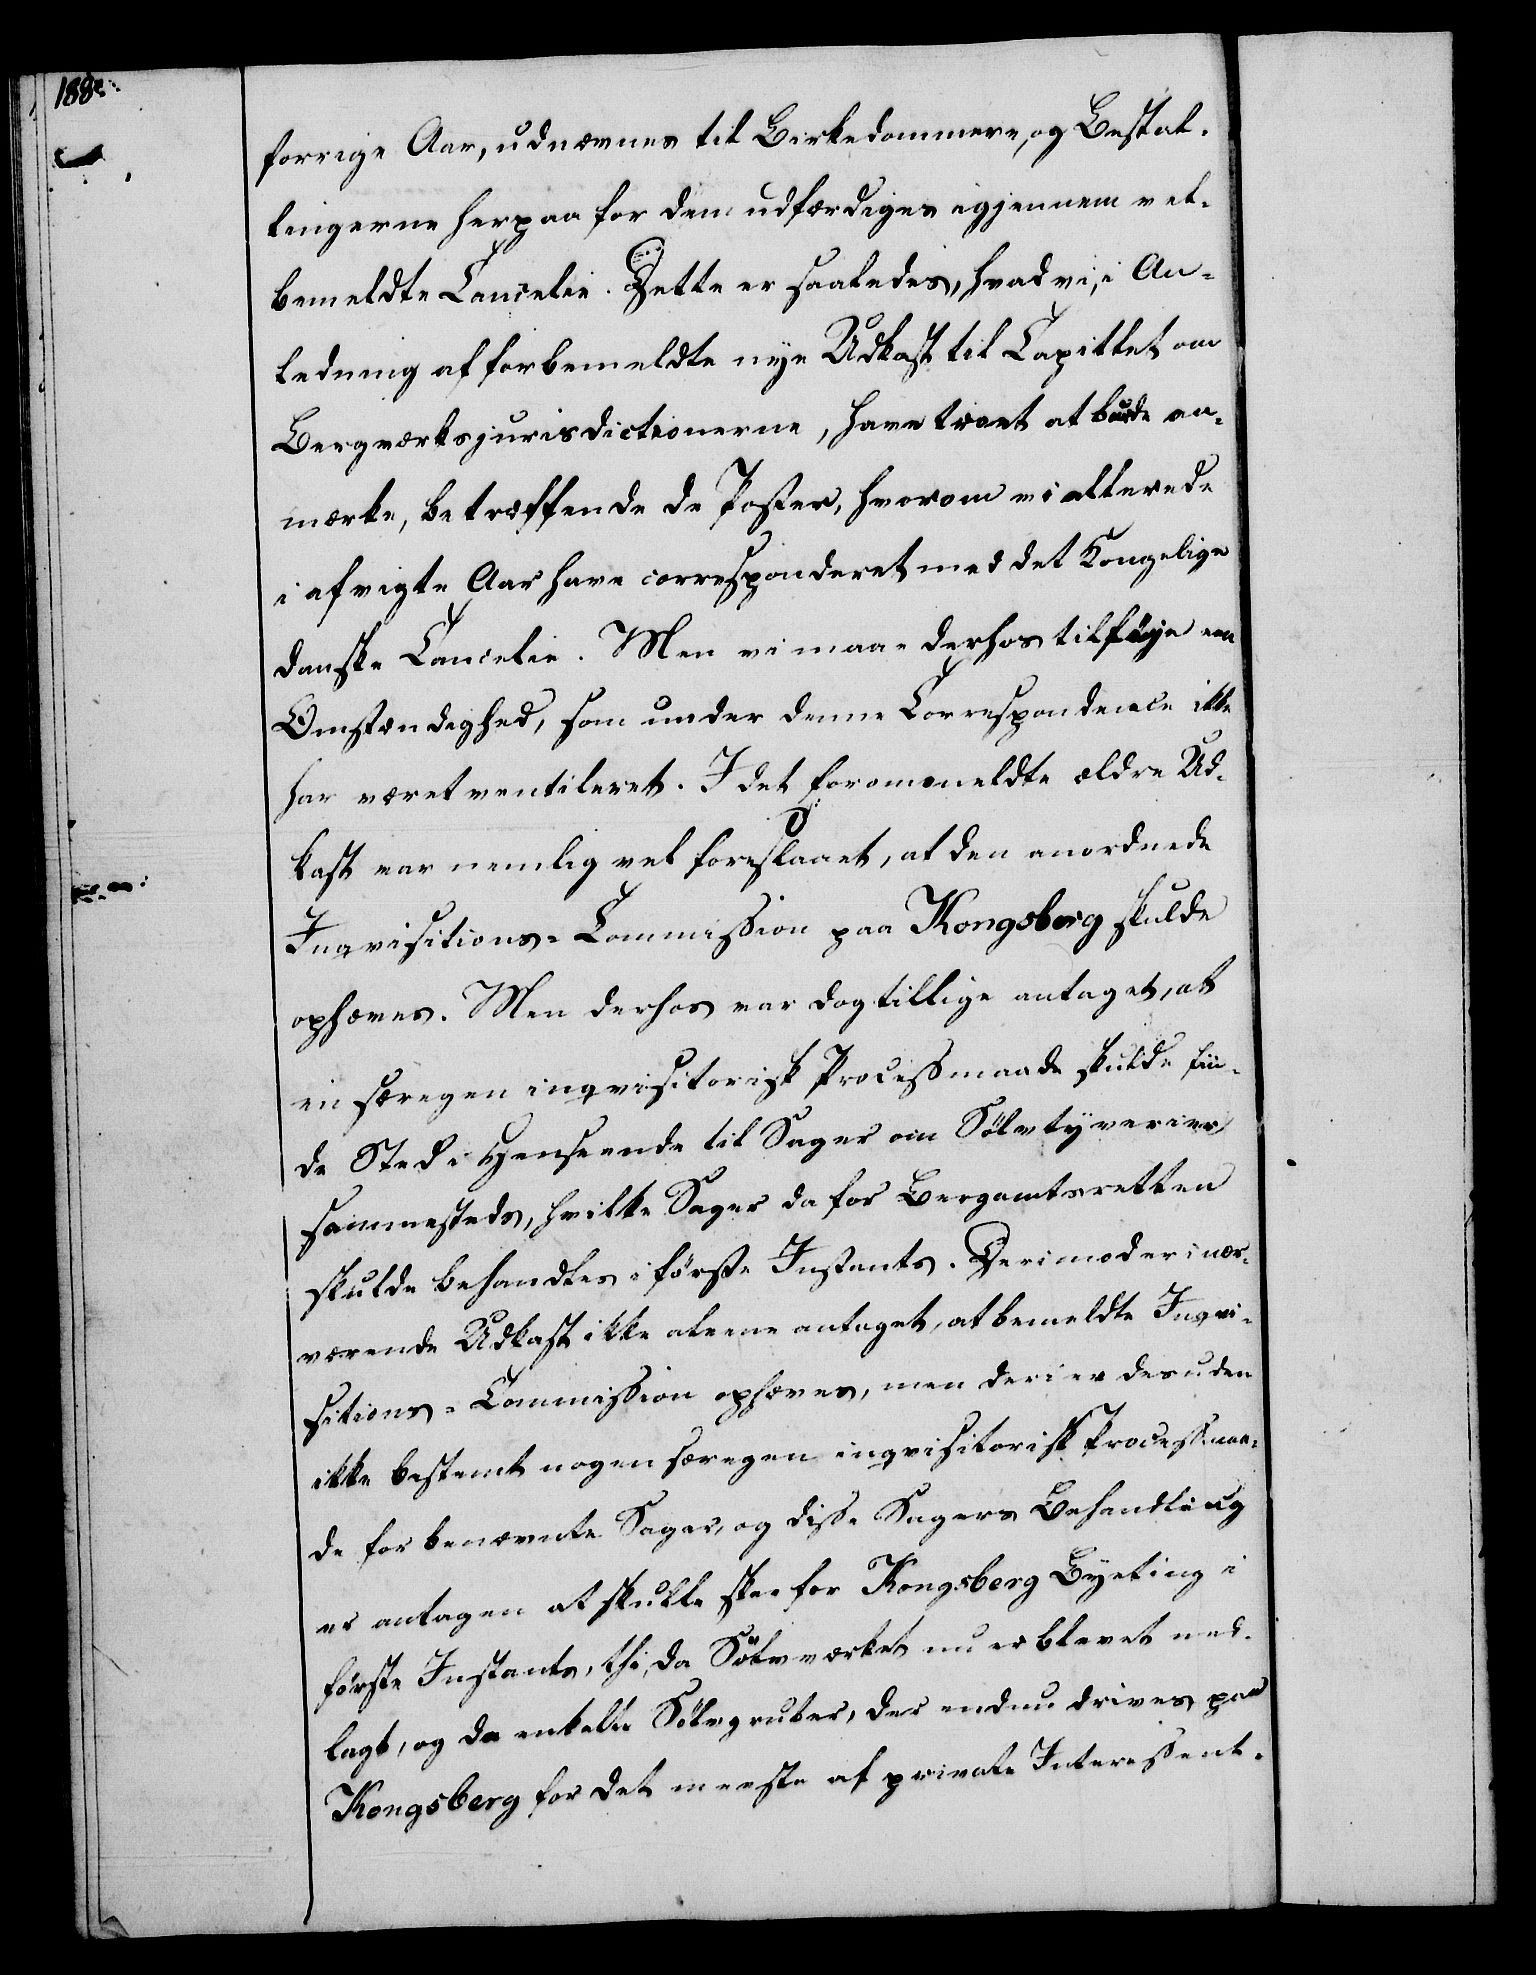 188
forrige Aar, udnævnes til Birkedommere, og Bestal-
lingerne herpaa for dem udfærdiges igjennem vel-
bemeldte Cancelie. Dette er saaledes, hvad vi, i An-
ledning af forbemeldte nye Udkast til Capitlet om
Bergværksjurisdictionerne, have troet at burde an-
mærke, betræffende de Poster, hvorom vi allerede
i afvigte Aar have corresponderet med det Kongelige
danske Cancelie. Men vi maae derhos tilføye een
Omstændighed, som under denne Correspondence ikke
har været ventileret. I det foromm​eldte ældre Ud-
kast var nemlig vel foreslaaet, at den anordnede
Inqvisitions-Commission paa Kongsberg skulde
ophæves. Men derhos var dog tillige antaget, at
en særegen inqvisitorisk Processmaade skulde fin-
de Sted i Henseende til Sager om Sølvtyverier
sammesteds, hvilke Sager da for Bergamtsretten
skulde behandles i første Instants. Derimod er i nær-
værende Udkast ikke alene antaget, at bemeldte Inqvi-
sitions-Commission ophæves, men deri er desuden
ikke bestemt nogen særegen inqvisitorisk Processmaa-
de for benævnte Sager, og disse Sagers Behandling
er antagen at skulle skee for Kongsberg Byeting i
første Instants, thi, da Sølvværket nu er blevet ned-
lagt, og de enkelte Sølvgruber, der endnu drives paa
Kongsberg for det meeste af private Interessent-